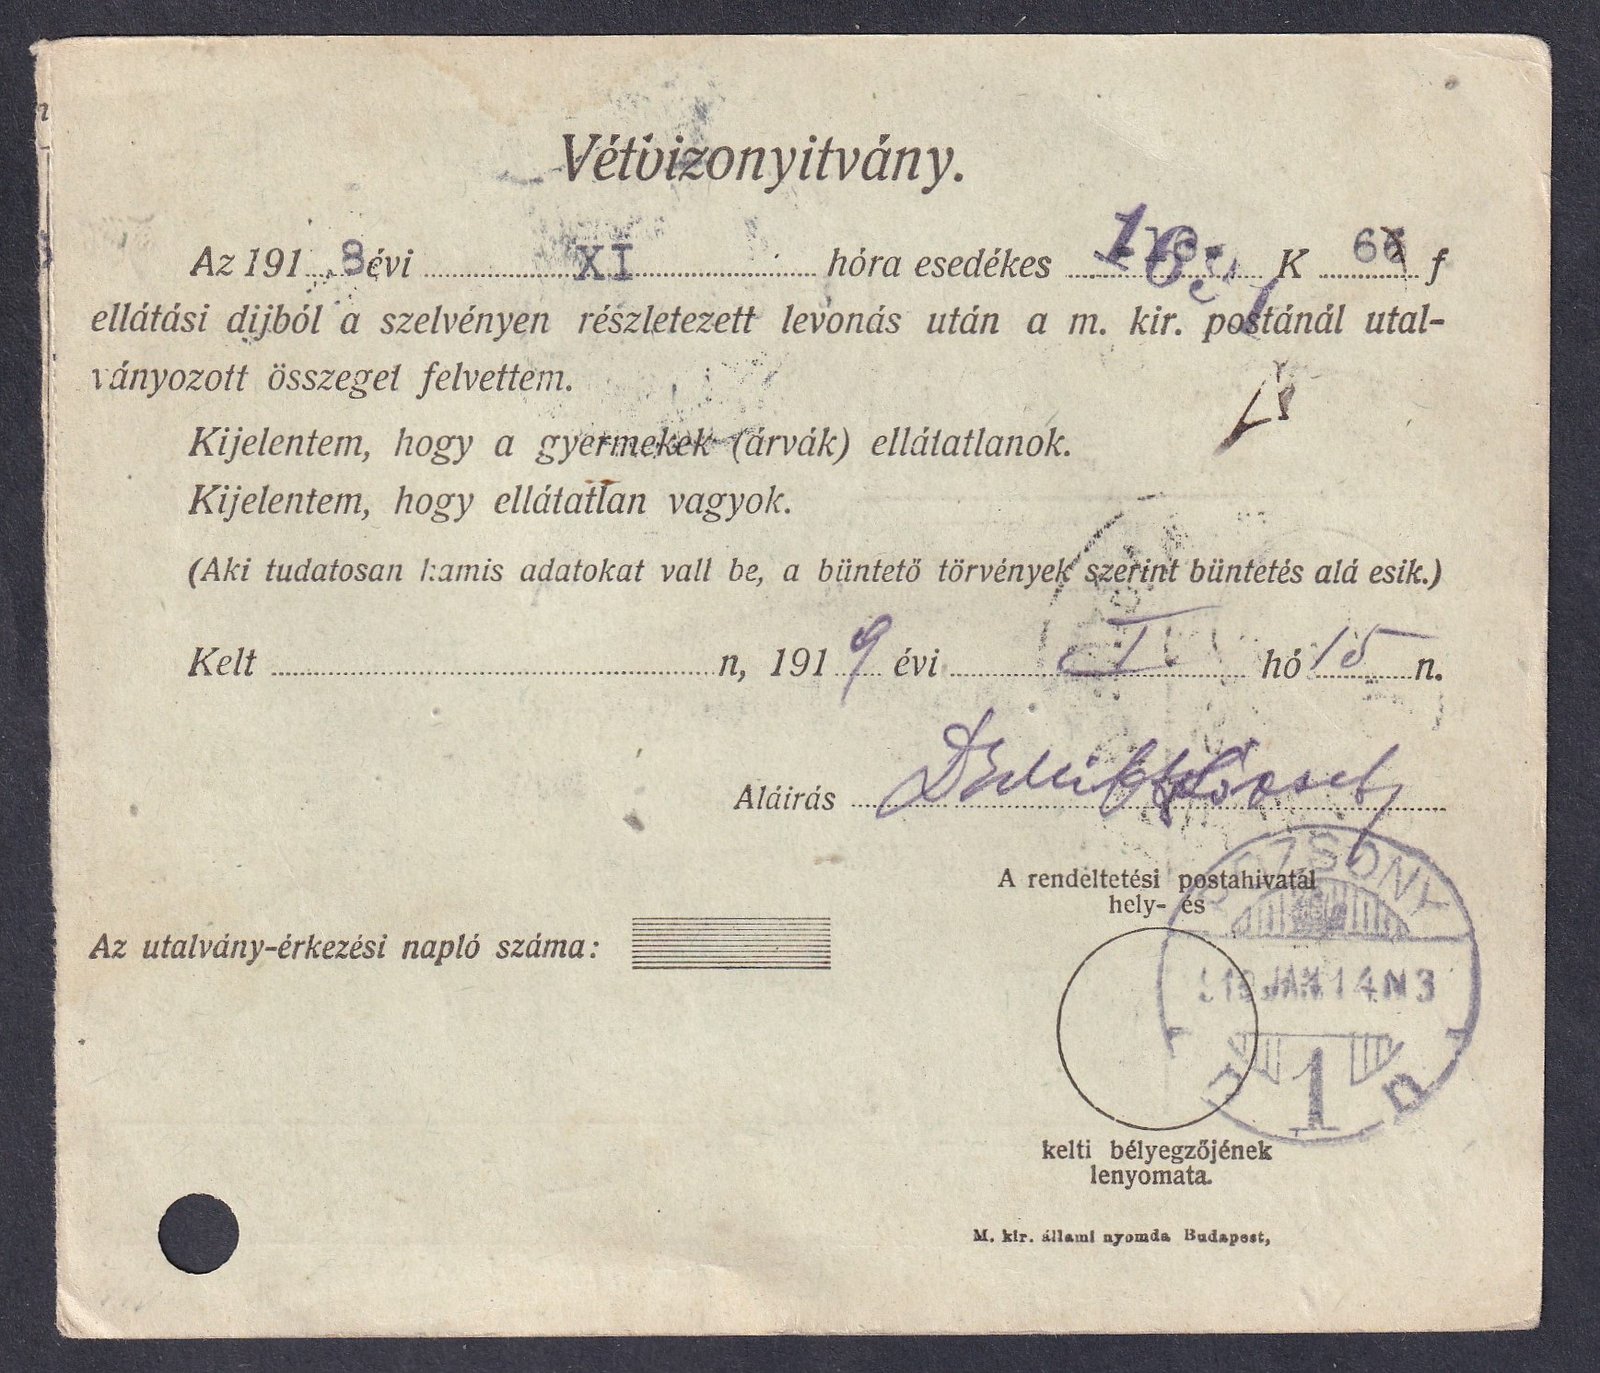 Vétbizonyitvány.
Az 1918 évi XI hóra esedékes K 66 f
ellátási dijból a szelvényen részletezett levonás után a m. kir. postánál utal-
ványozott összeget felvettem.
Kijelentem, hogy a gyermekek (árvák) ellátatlanok.
Kijelentem, hogy ellátatlan vagyok.
(Aki tudatosan hamis adatokat vall be, a büntető törvények szerint büntetés alá esik.)
Kelt n, 1919 évi I hó 15 n.
Aláirás
A rendeltetési postahivatal
hely- és
POZSONY
Az utalvány-érkezési napló száma:
919 JAN 14 N 3
1
kelti bélyegzőjének
lenyomata.
M. kir. állami nyomda Budapest,